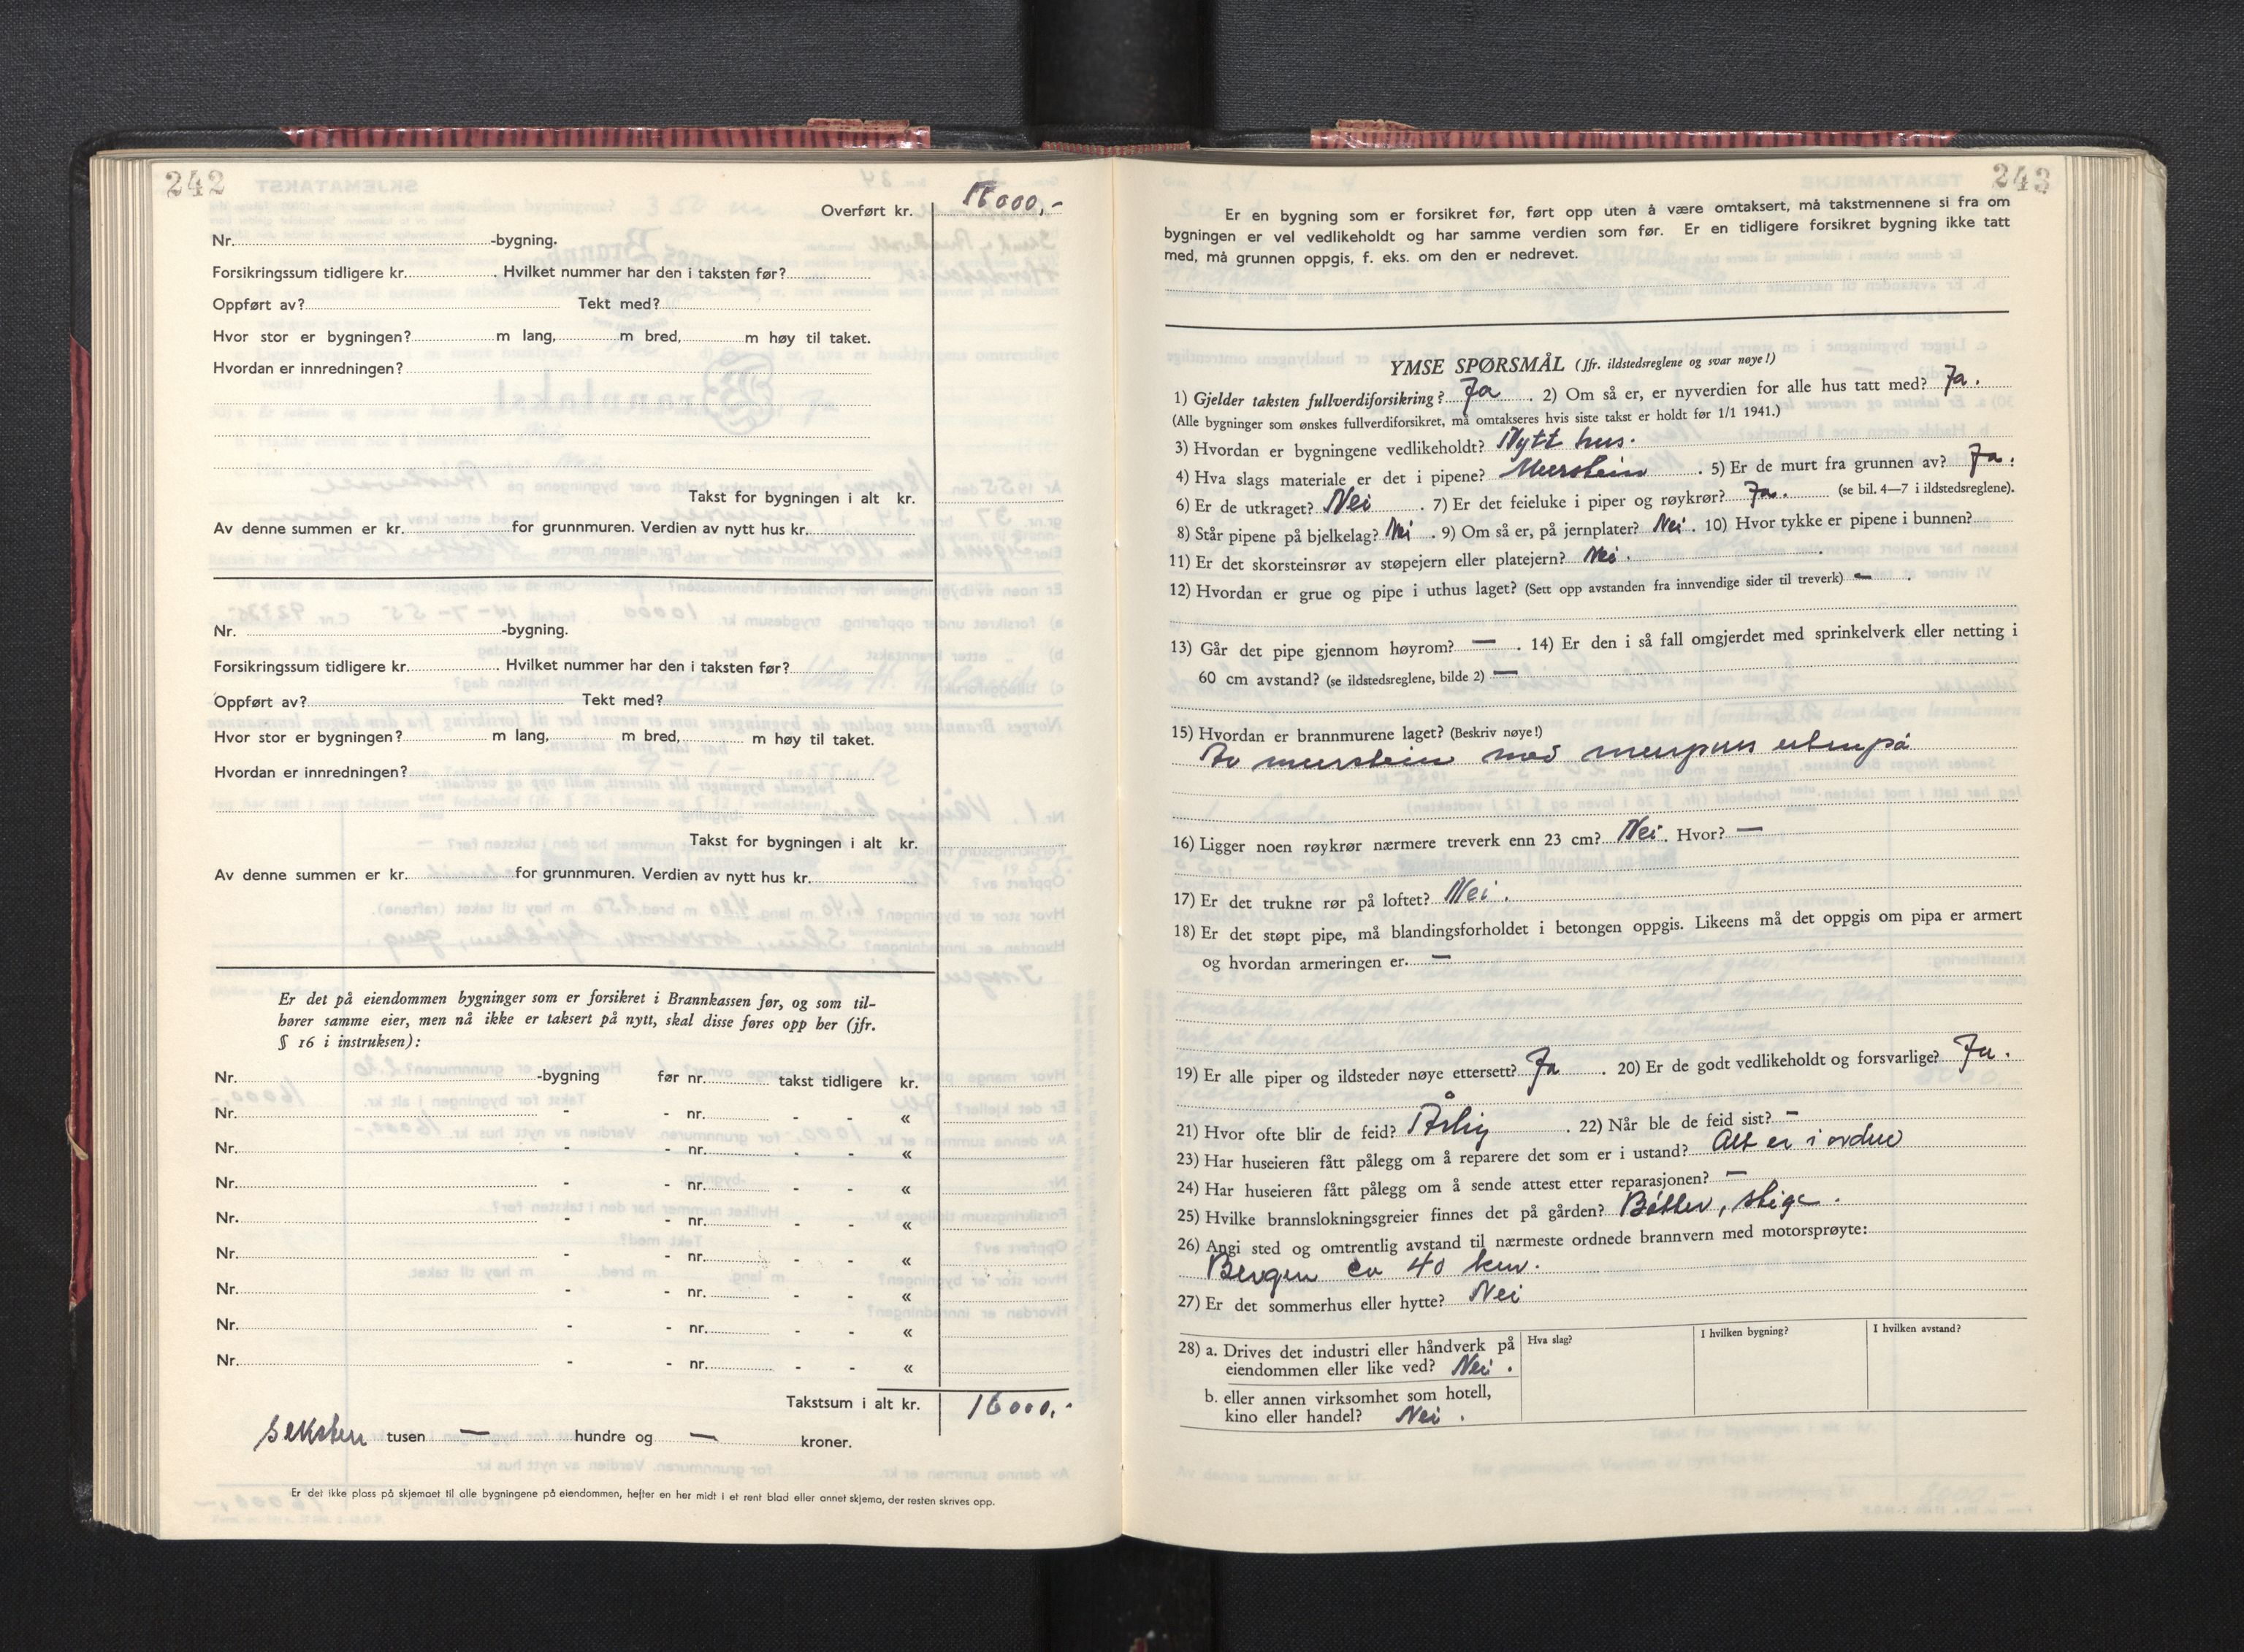 242
Overført kr. 16000,-
Nr. -bygning.
Forsikringssum tidligere kr. . Hvilket nummer har den i taksten før?
Oppført av? Tekt med?
Hvor stor er bygningen? m lang, m bred, m høy til taket.
Hvordan er innredningen?
Takst for bygningen i alt kr.
Av denne summen er kr. for grunnmuren. Verdien av nytt hus kr.
Nr. -bygning.
Forsikringssum tidligere kr. . Hvilket nummer har den i taksten før?
Oppført av? Tekt med?
Hvor stor er bygningen? m lang, m bred, m høy til taket.
Hvordan er innredningen?
Takst for bygningen i alt kr.
Av denne summen er kr. for grunnmuren. Verdien av nytt hus kr.
Er det på eiendommen bygninger som er forsikret i Brannkassen før, og som til-
hører samme eier, men nå ikke er taksert på nytt, skal disse føres opp her (jfr.
§ 16 i instruksen):
Nr. -bygning før nr. takst tidligere kr.
Nr. - - nr. - - «
Nr. - - nr. - - «
Nr. - - nr. - - «
Nr. - - nr. - - «
Nr. - - nr. - - «
Nr. - - nr. - - «
Nr. - - nr. - - «
Nr. - - nr. - - «
Takstsum i alt kr. 16000,-
seksten tusen — hundre og — kroner.
Er det ikke plass på skjemaet til alle bygningene på eiendommen, hefter en her midt i et rent blad eller annet skjema, der resten skrives opp.
243
Er en bygning som er forsikret før, ført opp uten å være omtaksert, må takstmennene si fra om
bygningen er vel vedlikeholdt og har samme verdien som før. Er en tidligere forsikret bygning ikke tatt
med, må grunnen oppgis, f. eks. om den er nedrevet.
YMSE SPØRSMÅL (Jfr. ildstedsreglene og svar nøye!)
1) Gjelder taksten fullverdiforsikring? Ja . 2) Om så er, er nyverdien for alle hus tatt med? Ja.
(Alle bygninger som ønskes fullverdiforsikret, må omtakseres hvis siste takst er holdt før 1/1 1941.)
3) Hvordan er bygningene vedlikeholdt? Nytt hus.
4) Hva slags materiale er det i pipene? Murstein . 5) Er de murt fra grunnen av? Ja.
6) Er de utkraget? Nei . 7) Er det feieluke i piper og røykrør? Ja. (se bil. 4—7 i ildstedsreglene).
8) Står pipene på bjelkelag? Nei . 9) Om så er, på jernplater? Nei . 10) Hvor tykke er pipene i bunnen?
11) Er det skorsteinsrør av støpejern eller platejern? Nei .
12) Hvordan er grue og pipe i uthus laget? (Sett opp avstanden fra innvendige sider til treverk) — .
13) Går det pipe gjennom høyrom? — . 14) Er den i så fall omgjerdet med sprinkelverk eller netting i
60 cm avstand? (se ildstedsreglene, bilde 2) —
15) Hvordan er brannmurene laget? (Beskriv nøye!)
Av murstein med murpuss utenpå
16) Ligger noen røykrør nærmere treverk enn 23 cm? Nei . Hvor? —
17) Er det trukne rør på loftet? Nei .
18) Er det støpt pipe, må blandingsforholdet i betongen oppgis. Likeens må det oppgis om pipa er armert
og hvordan armeringen er. —
19) Er alle piper og ildsteder nøye ettersett? Ja . 20) Er de godt vedlikeholdt og forsvarlige? Ja.
21) Hvor ofte blir de feid? Årlig . 22) Når ble de feid sist? —
23) Har huseieren fått pålegg om å reparere det som er i ustand? Alt er i orden
24) Har huseieren fått pålegg om å sende attest etter reparasjonen? —
25) Hvilke brannslokningsgreier finnes det på gården? Bøtter, stige.
26) Angi sted og omtrentlig avstand til nærmeste ordnede brannvern med motorsprøyte:
Bergen ca 40 km.
27) Er det sommerhus eller hytte? Nei
28) a. Drives det industri eller håndverk på Hva slag? I hvilken bygning? I hvilken avstand?
eiendommen eller like ved? Nei .
b. eller annen virksomhet som hotell,
kino eller handel? Nei .